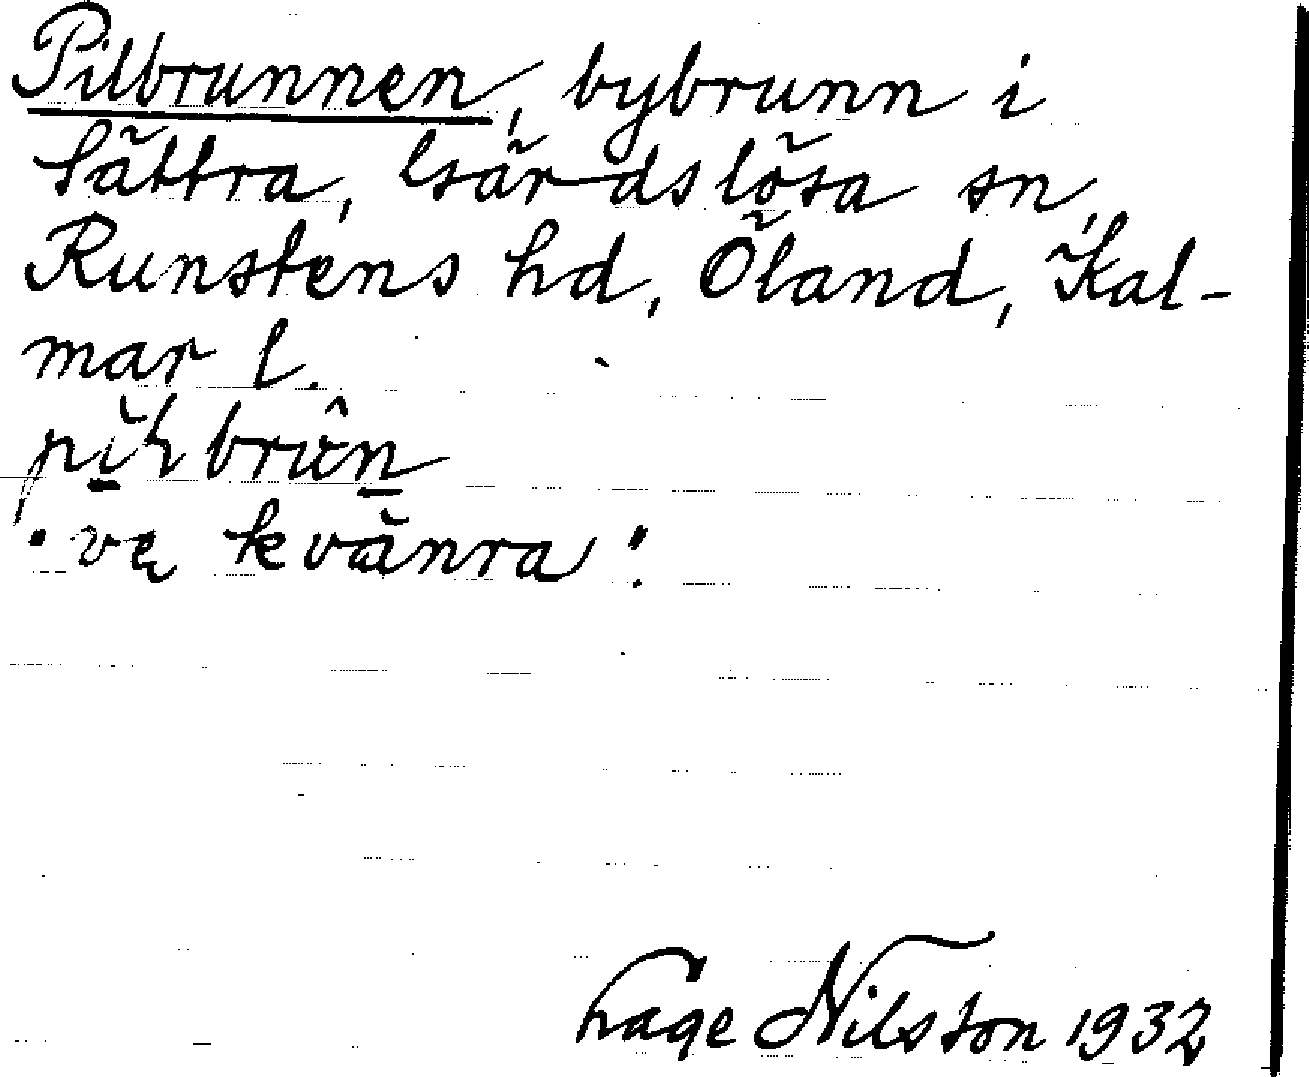 Pilbrunnen, bybrunn i
Sättra, Gärdslösa sn,
Runstens hd, Öland, Kal-
mar l.
"ve kvänra"
Hage Nilsson 1932